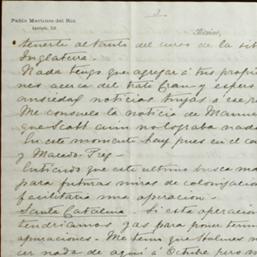 Pablo Martinez del Rio
México,
tenerte al tanto del curso de la sit
Inglaterra.
Nada tengo que agregar á tus propi
nes acerca del trato Gran y espero
ansiedad noticias tuyas á ese
Me consuela la noticia de
que Scott aun no lograba nada
En este momento hay pues en el co
y Macedo
Entiendo que este ultimo busca ma
para futuras miras de colonizacio
facilitaria una operacion.
Santa Catalina. Si esta operacion
tendriamos ya para poner termi
apuraciones. Me temo que Holmes n
cer nada de aqui á Octubre pero